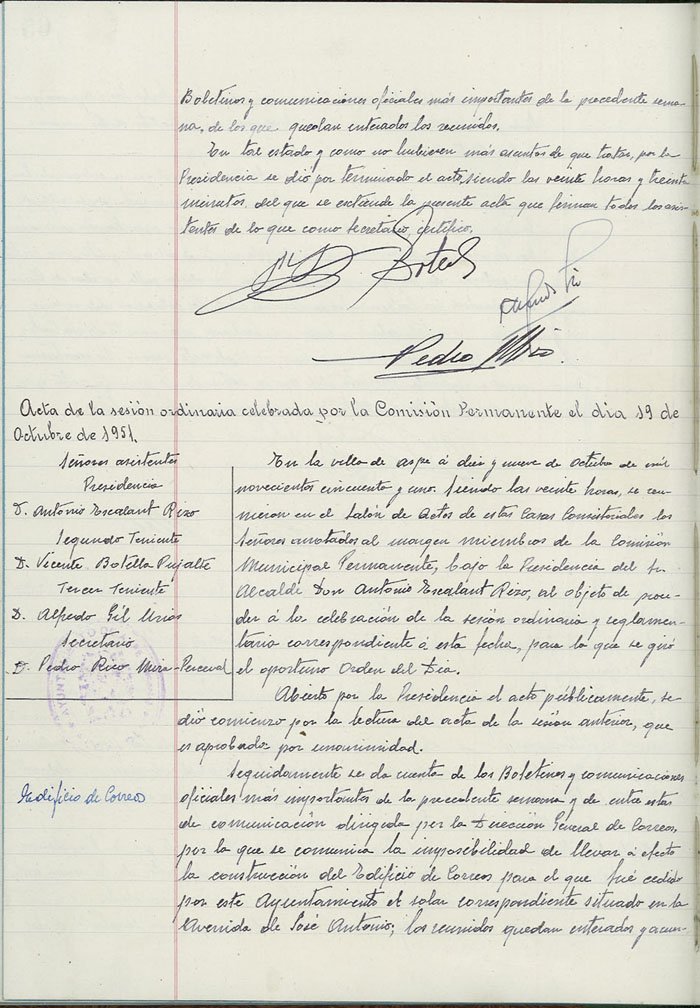 Boletines y comunicaciones oficiales más importantes de la precedente sema-
na, de los que quedan enterados los reunidos.
En tal estado y como no hubieren más asuntos de que tratar, por la
Presidencia se dió por terminado el acto, siendo las veinte horas y treinta
minutos, del que se extiende la presente acta que firman todos los asis-
tentes de lo que como Secretario, certifico.
Botella
Alfredo Gil
Pedro Rico
Acta de la sesión ordinaria celebrada por la Comisión Permanente el dia 19 de
Octubre de 1951.
Señores asistentes
Presidencia
D. Antonio Escalant Rizo
Segundo Teniente
D. Vicente Botella Pujalte
Tercer Teniente
D. Alfredo Gil Urios
Secretario
D. Pedro Rico Mira-Perceval
En la villa de Aspe á diez y nueve de Octubre de mil
novecientos cincuenta y uno. Siendo las veinte horas, se reu-
nieron en el Salón de Actos de estas Casas Consistoriales los
Señores anotados al margen miembros de la Comisión
Municipal Permanente, bajo la Presidencia del Sr.
Alcalde Don Antonio Escalant Rizo, al objeto de proce-
der á la celebración de la sesión ordinaria y reglamen-
taria correspondiente á esta fecha, para la que se giró
el oportuno Orden del Dia.
Abierto por la Presidencia el acto públicamente, se
dió comienzo por la lectura del acta de la sesión anterior, que
es aprobada por unanimidad.
Edificio de Correos
Seguidamente se da cuenta de los Boletines y comunicaciones
oficiales más importantes de la precedente semana y de entre estas
de comunicación dirigida por la Dirección General de Correos,
por la que se comunica la imposibilidad de llevar á efecto
la construcción del Edificio de Correos para el que fué cedido
por este Ayuntamiento el solar correspondiente situado en la
Avenida de José Antonio; los reunidos quedan enterados y acuer-